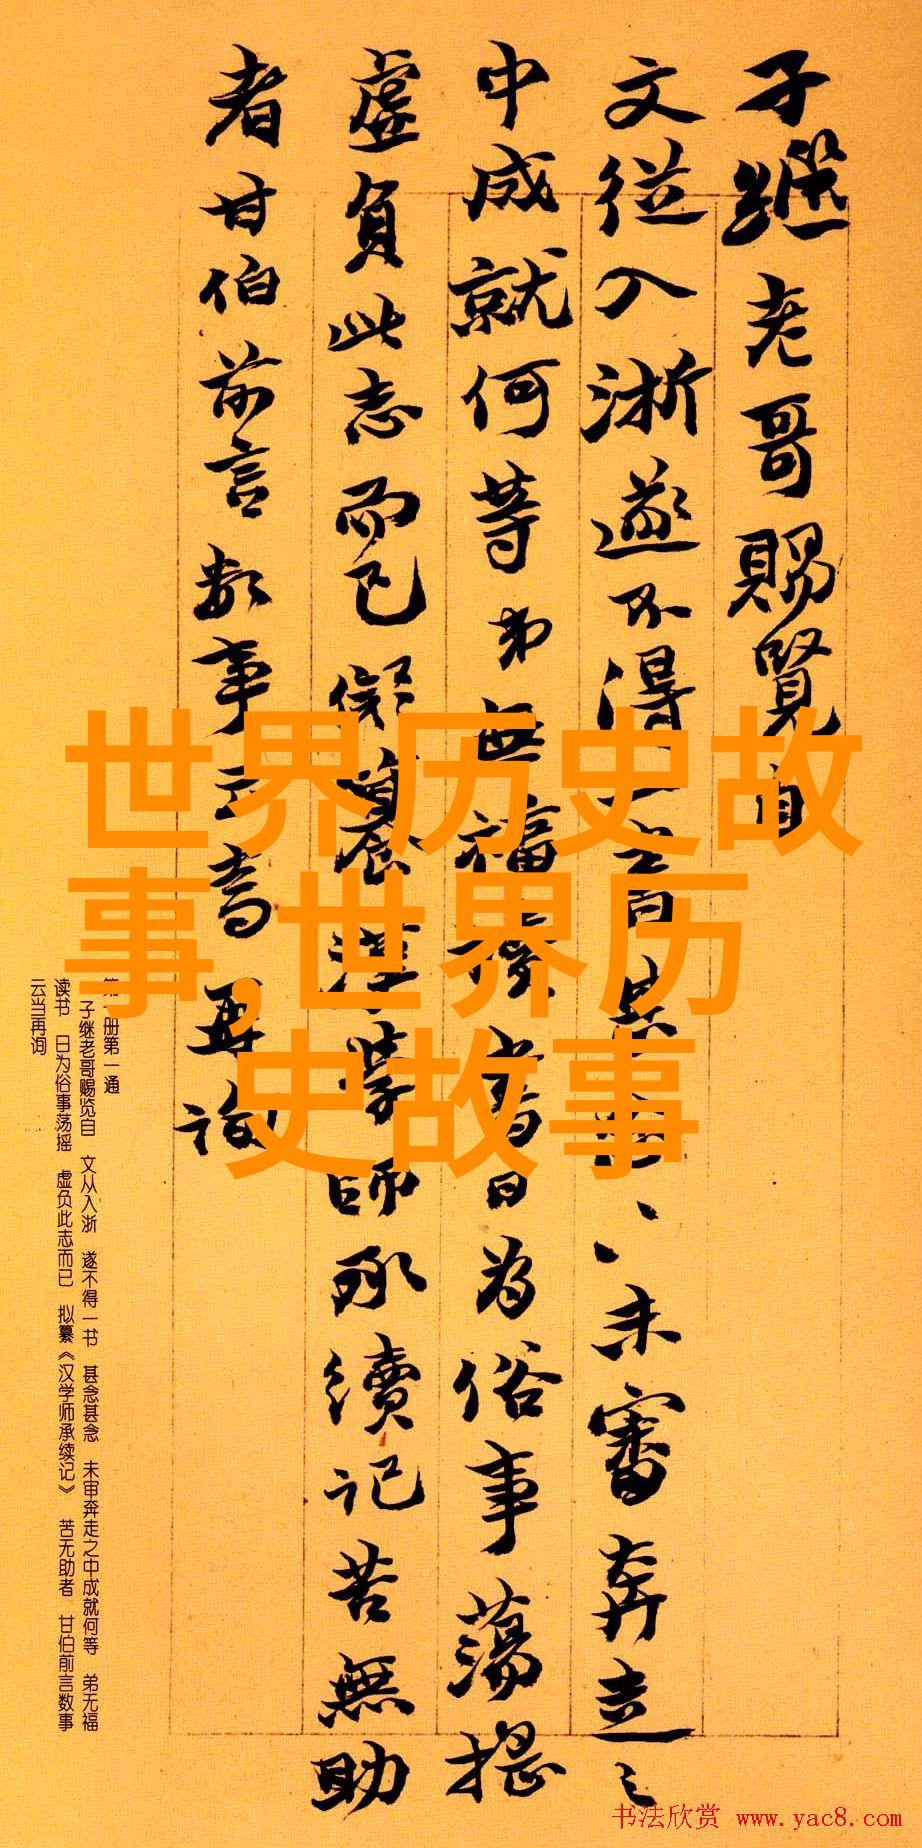 子繼老哥賜覽自
文從入浙遂不得一書甚念〻〻未審奔走之
中成就何等弟無福讀書日為俗事蕩摇
虚負此志而已擬纂漢學師承續記苦無助
者甘伯前言數事云當再詢
世界历史故
事,世界历
史故事
第一册第一通
子继老哥赐览自 文从入浙 遂不得一书 甚念甚念 未审奔走之中成就何等 弟无福
读书 日为俗事荡摇 虚负此志而已 拟纂《汉学师承续记》 苦无助者 甘伯前言数事
云当再询
书法欣赏 www.yac8.com